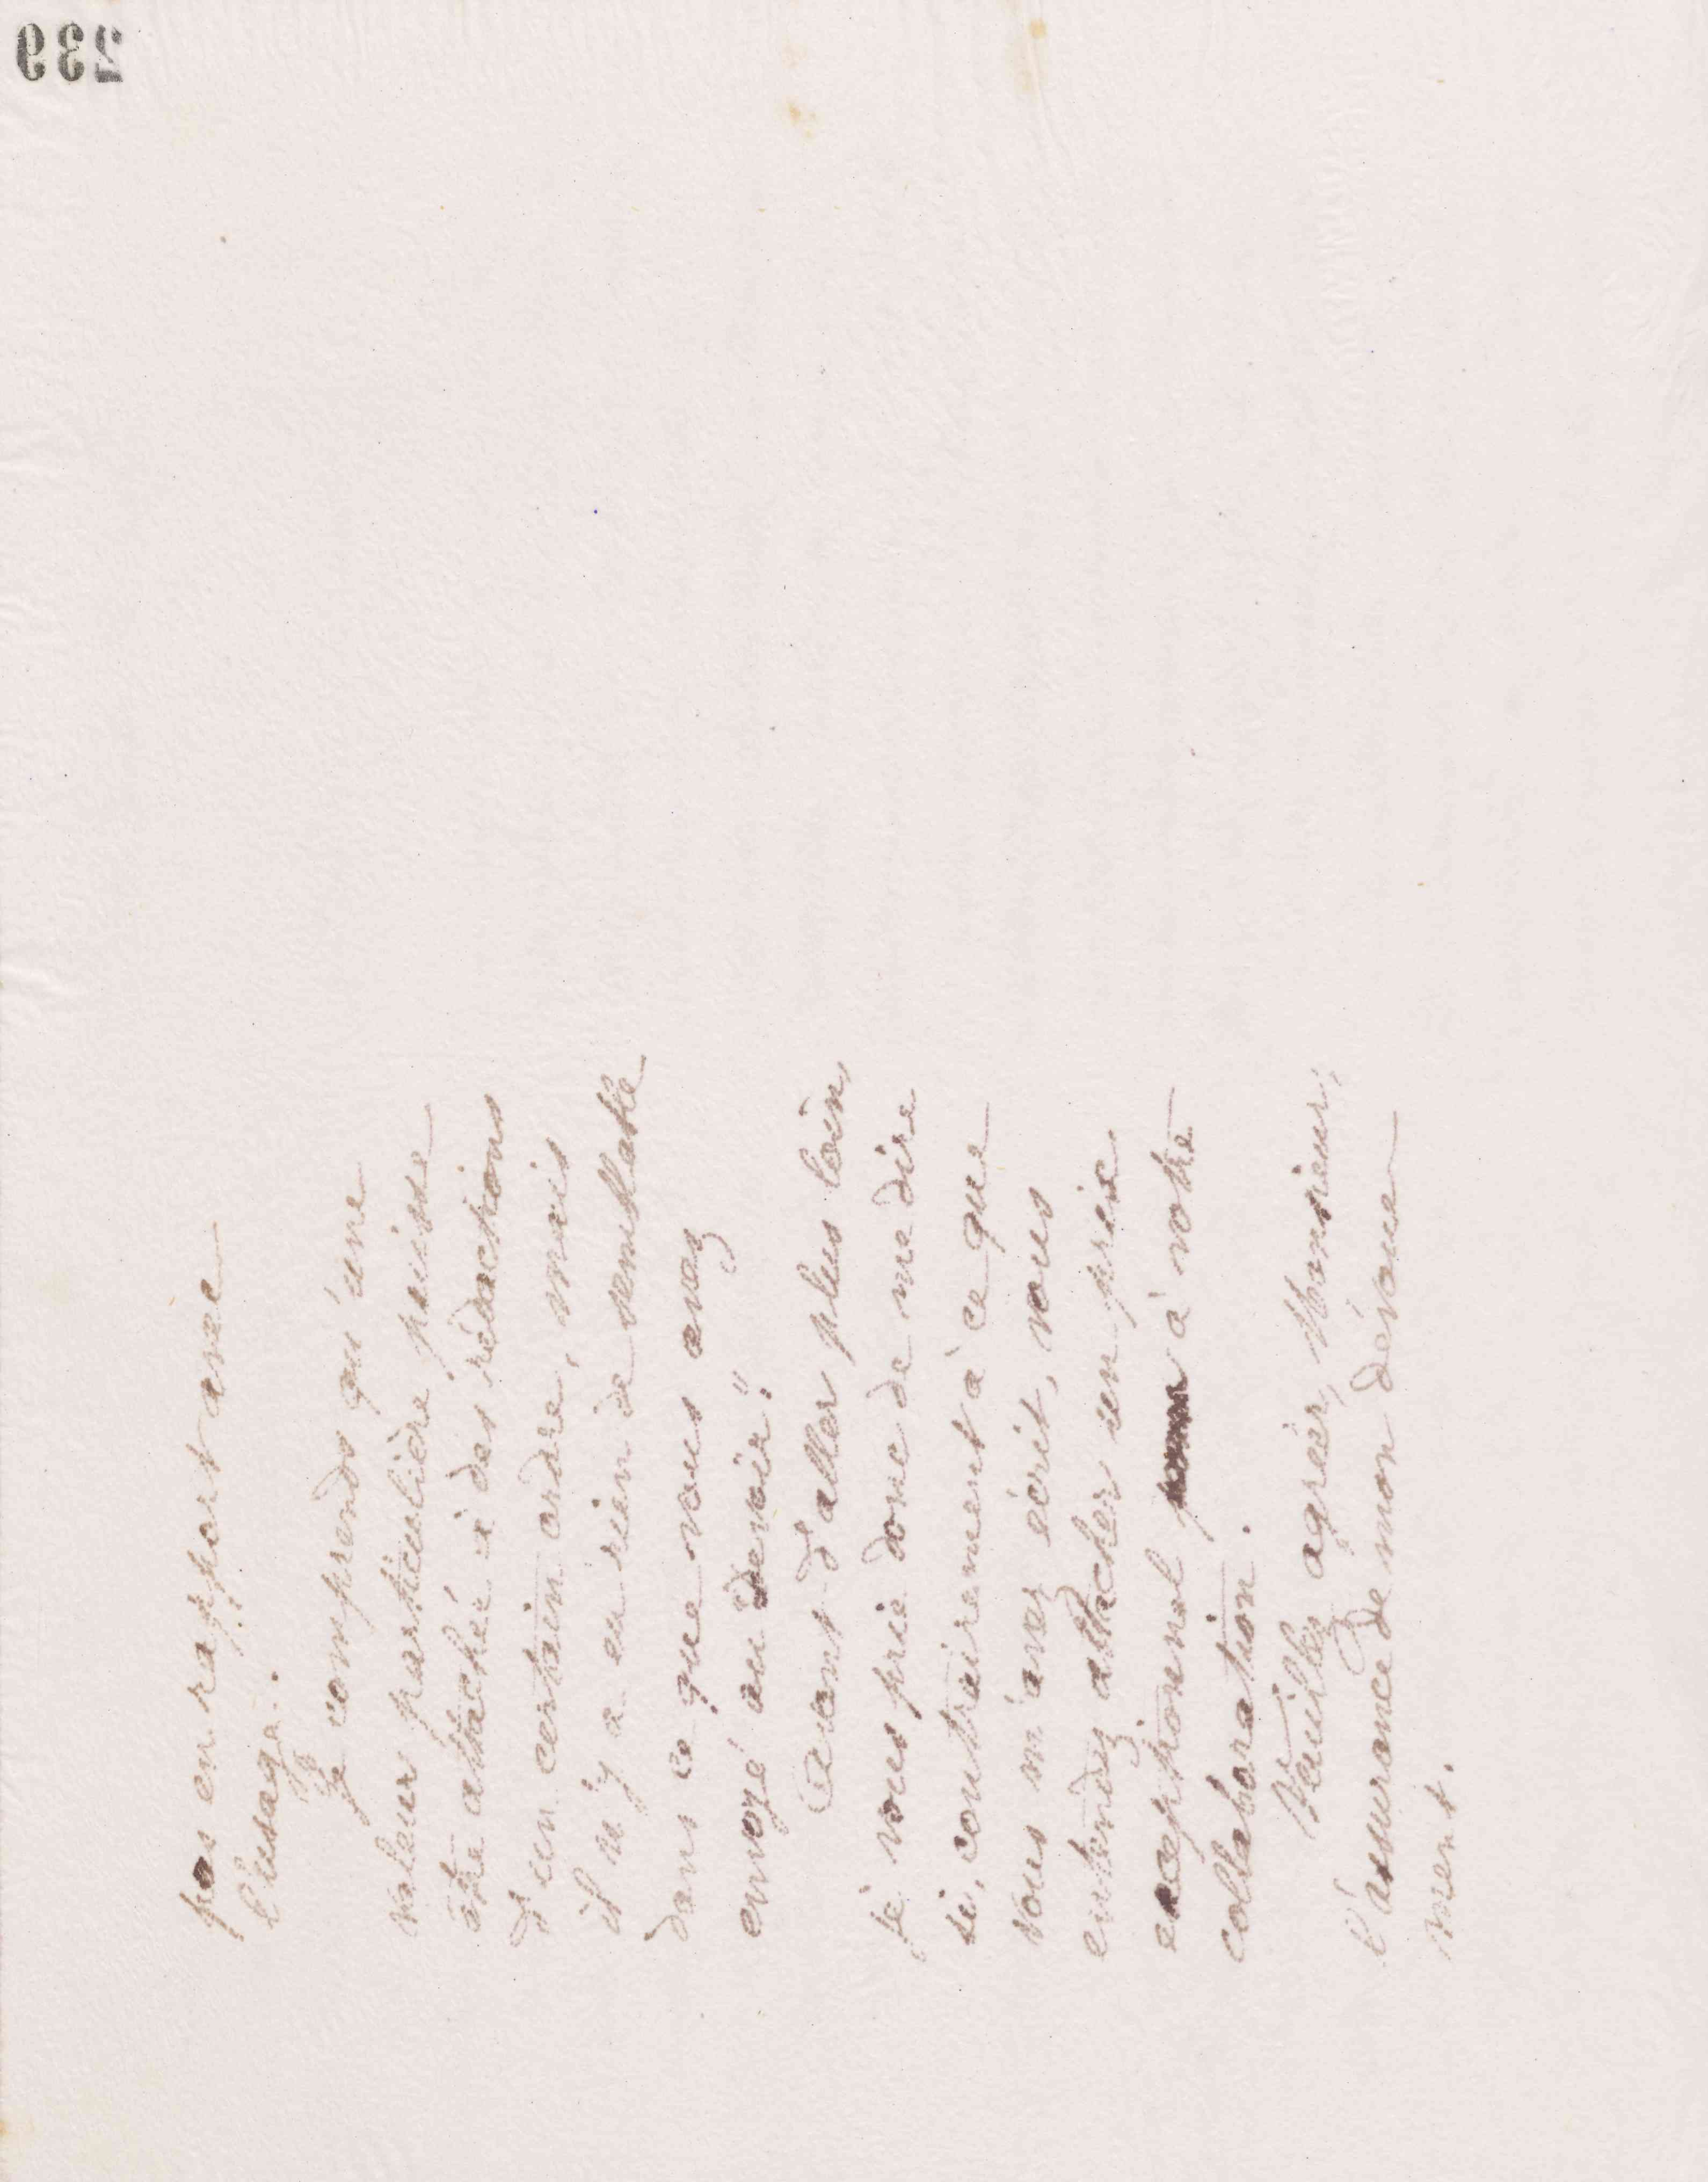 239
pas en rapport avec
l'usage.
Je comprends qu'une
valeur particulière puisse
être attaché à des rédactions
d'un certain ordre, mais
il n'y a eu rien de semblable
dans ce que vous avez
envoyé au "Devoir".
Avant d'aller plus loin,
je vous prie donc de me dire
si, contrairement à ce que
vous m'avez écrit, vous
entendez attacher un prix
exceptionnel à votre
collaboration.
Veuillez agréer, Monsieur,
l'assurance de mon dévoue
ment.